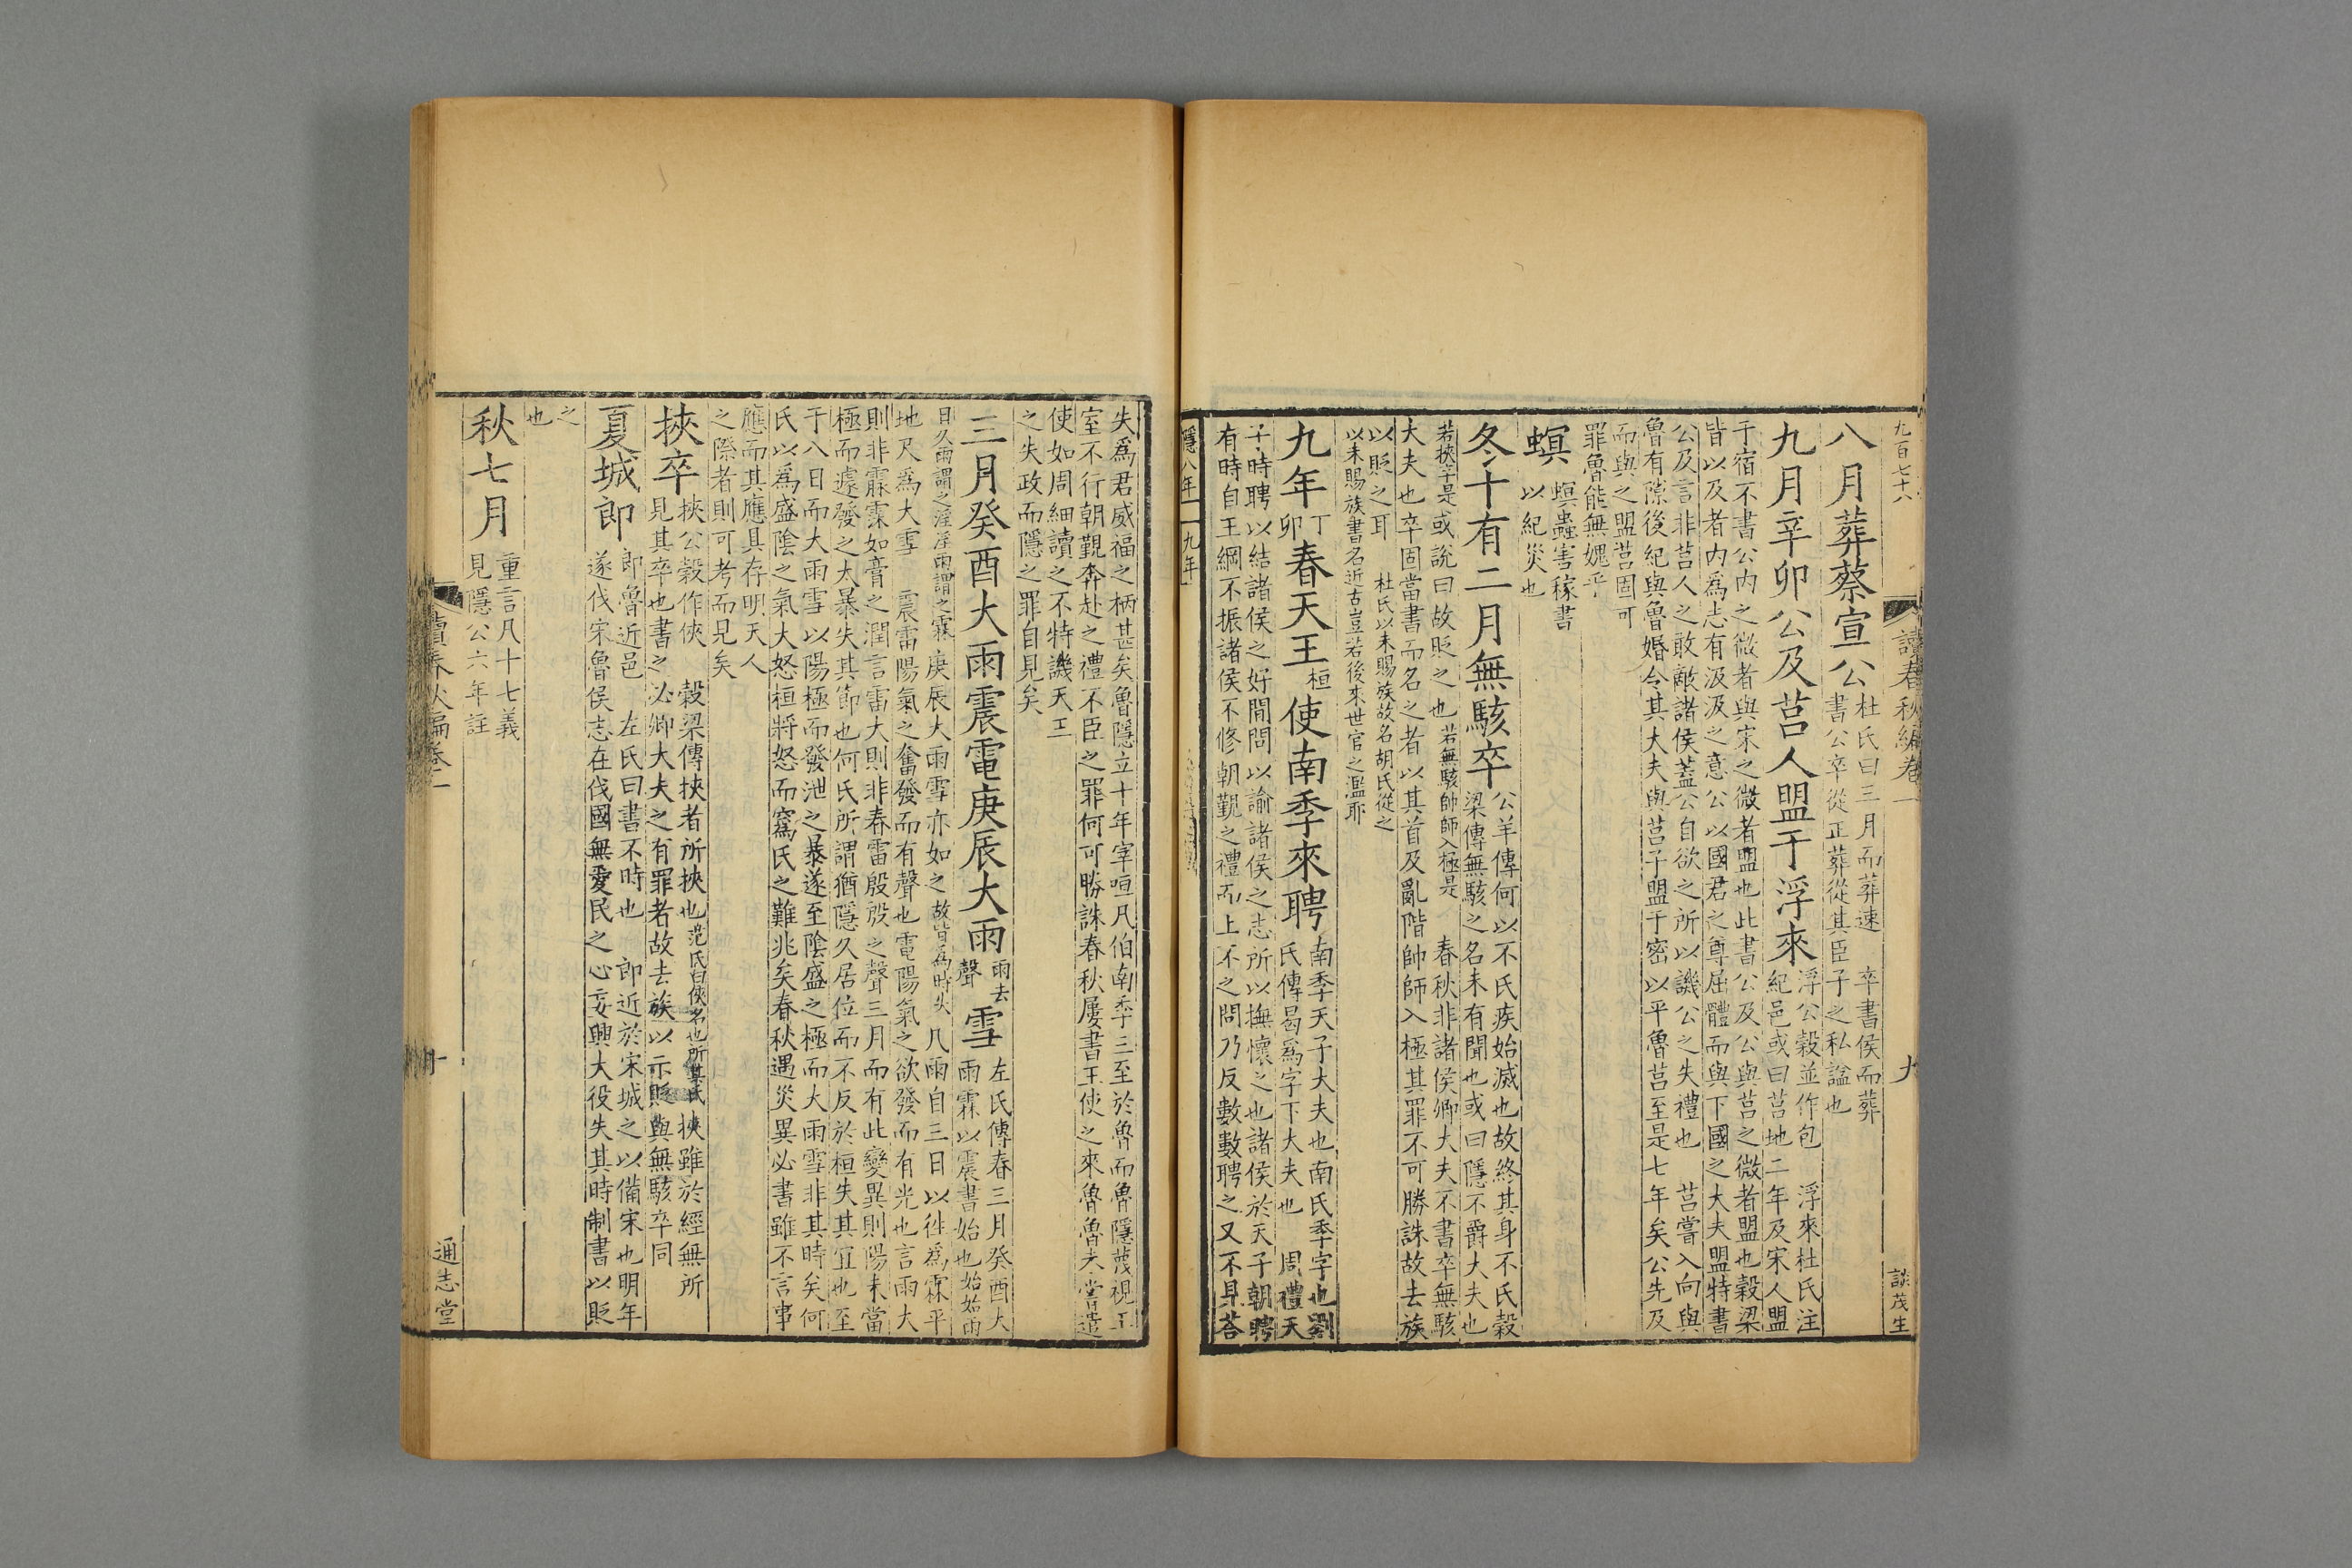 九百七十八
讀春秋編卷一
九
談茂生
八月葬蔡宣公
杜氏曰三月而葬速 卒書侯而葬
書公卒從正葬從其臣子之私謚也
九月辛卯公及莒人盟于浮來
浮公穀並作包 浮來杜氏注
紀邑或曰莒地二年及宋人盟
于宿不書公內之微者與宋之微者盟也此書公及公與莒之微者盟也穀梁
皆以及者內為志有汲汲之意公以國君之尊屈體而與下國之大夫盟特書
公及言非莒人之敢敵諸侯蓋公自欲之所以譏公之失禮也 莒嘗入向與
魯有隙後紀與魯婚令其大夫與莒子盟于密以平魯莒至是七年矣公先及
而與之盟莒固可
罪魯能無媿乎
螟
螟蟲害稼書
以紀災也
冬十有二月無駭卒
公羊傳何以不氏疾始滅也故終其身不氏穀
梁傳無駭之名未有聞也或曰隱不爵大夫也
若挾卒是或說曰故貶之也若無駭帥師入極是 春秋非諸侯卿大夫不書卒無駭
大夫也卒固當書而名之者以其首及亂階帥師入極其罪不可勝誅故去族
以貶之耳 杜氏以未賜族故名胡氏從之
以未賜族書名近古豈若後來世官之濫耶
九年
丁
卯
春天王
桓
使南季來聘
南季天子大夫也南氏季字也劉
氏傳曷為字下大夫也 周禮天
子時聘以結諸侯之好間問以諭諸侯之志所以撫懷之也諸侯於天子朝聘
有時自王綱不振諸侯不修朝覲之禮而上不之問乃反數數聘之又不見荅
隱八年 九年
失為君威福之柄甚矣魯隱立十年宰咺凡伯南季三至於魯而魯隱蔑視王
室不行朝覲奔赴之禮不臣之罪何可勝誅春秋屢書王使之來魯魯未嘗遣
使如周細讀之不特譏天王
之失政而隱之罪自見矣
三月癸酉大雨震電庚辰大雨
雨去
聲
雪
左氏傳春三月癸酉大
雨霖以震書始也始始雨
日久雨謂之淫淫雨謂之霖 庚辰大雨雪亦如之故皆為時失 凡雨自三日以徃為霖平
地尺為大雪 震雷陽氣之奮發而有聲也電陽氣之欲發而有光也言雨大
則非霡霂如膏之潤言雷大則非春雷殷殷之聲三月而有此變異則陽未當
極而遽發之太暴失其節也何氏所謂猶隱久居位而不反於桓失其宜也至
于八日而大雨雪以陽極而發泄之暴遂至陰盛之極而大雨雪非其時矣何
氏以為盛陰之氣大怒桓將怒而寫氏之難兆矣春秋遇災異必書雖不言事
應而其應具存明天人
之際者則可考而見矣
挾卒
挾公穀作俠 穀梁傳挾者所挾也范氏曰俠名也所其氏 挾雖於經無所
見其卒也書之必卿大夫之有罪者故去族以示貶與無駭卒同
夏城郎
郎魯近邑 左氏曰書不時也 郎近於宋城之以備宋也明年
遂伐宋魯侯志在伐國無愛民之心妄興大役失其時制書以貶
之
也
秋七月
重言凡十七義
見隱公六年註
讀春秋編卷一
十
通志堂